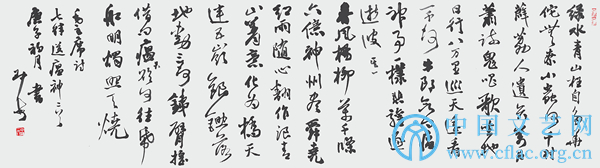 绿水青山枉自多华
佗无奈小虫何千村
薜荔人遗矢万户
萧疏鬼唱歌坐地
日行八万里巡天遥看
一千河牛郎欲问瘟
神事一样悲欢逐
逝波 其二
春风杨柳萬千條
六亿神州尽舜尧
红雨随心翻作浪青
山着意化为桥天
连五岭银锄落
地动三河铁臂摇
借问瘟君欲何往纸
船明烛照天烧
毛主席诗
七律送瘟神二首
庚子初月 书
中国文艺网
www.cflac.org.cn